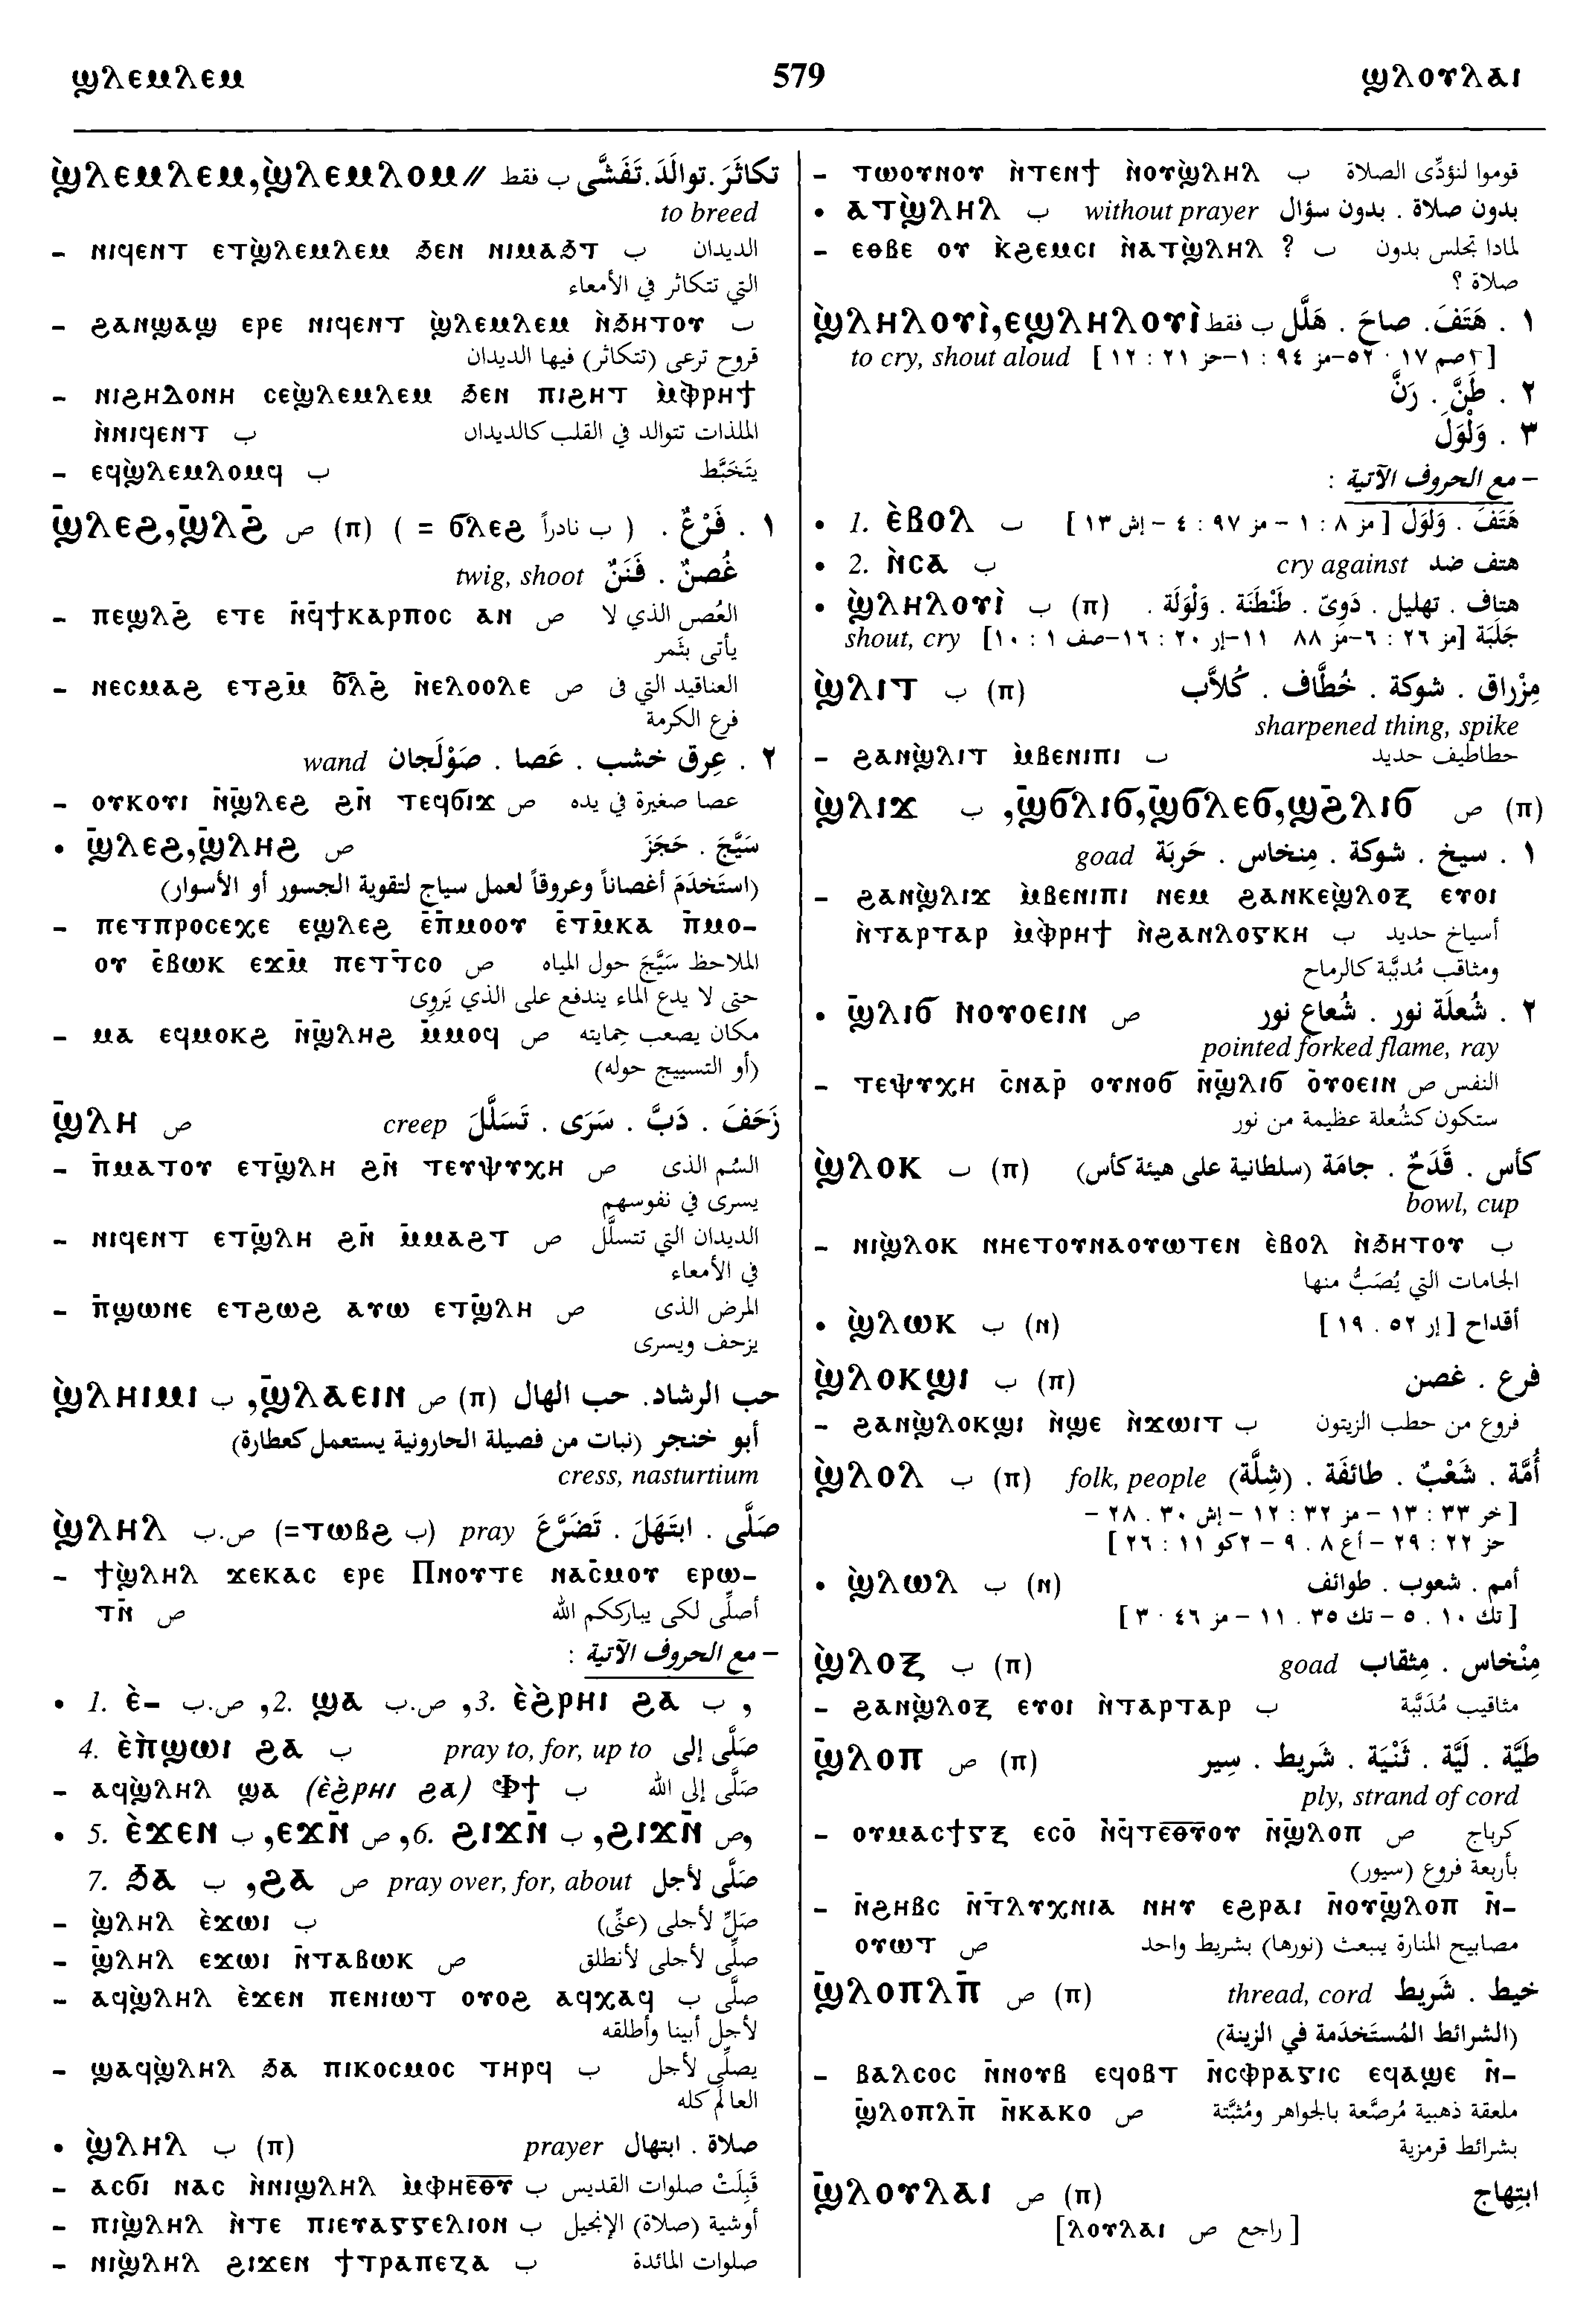 ϣⲗⲉⲙⲗⲉⲙ 579 ϣⲗⲟⲩⲗⲁⲓ
ϣ̀ⲗⲉⲙⲗⲉⲙ,ϣ̀ⲗⲉⲙⲗⲟⲙ// تكاثَرَ.توالَدَ.تَفَشَّى ب فقط
to breed
– ⲛⲓϥⲉⲛⲧ ⲉⲧϣ̀ⲗⲉⲙⲗⲉⲙ ϧⲉⲛ ⲛⲓⲙⲁϧⲧ ب الديدان
التي تتكاثر في الأمعاء
– ϩⲁⲛϣⲁϣ ⲉⲣⲉ ⲛⲓϥⲉⲛⲧ ϣ̀ⲗⲉⲙⲗⲉⲙ ⲛ̀ϧⲏⲧⲟⲩ ب
قروح ترعى (تتكاثر) فيها الديدان
– ⲛⲓϩⲏⲇⲟⲛⲏ ⲥⲉϣ̀ⲗⲉⲙⲗⲉⲙ ϧⲉⲛ ⲡⲓϩⲏⲧ ⲙ̀ⲫⲣⲏϯ
ⲛ̀ⲛⲓϥⲉⲛⲧ ب الملذات تتوالد في القلب كالديدان
– ⲉϥϣ̀ⲗⲉⲙⲗⲟⲙϥ ب يتَخَبَّط
ϣ̄ⲗⲉϩ,ϣ̄ⲗϩ̄ ص (ⲡ) ( = ϭⲗⲉϩ ب نادراً ) . ١ . فَرْعٌ
غُصنٌ . فَنَنٌ twig, shoot
– ⲡⲉϣⲗϩ̄ ⲉⲧⲉ ⲛ̄ϥϯⲕⲁⲣⲡⲟⲥ ⲁⲛ ص الغُصن الذي لا
يأتى بثَمر
– ⲛⲉⲥⲙⲁϩ ⲉⲧϩⲙ̄ ϭⲗϩ̄ ⲛ̄ⲉⲗⲟⲟⲗⲉ ص العناقيد التي في
فرع الكرمة
٢ . عِرق خشب . عَصا . صَوْلَجان wand
– ⲟⲩⲕⲟⲩⲓ ⲛ̄ϣ̄ⲗⲉϩ ϩⲛ̄ ⲧⲉϥϭⲓϫ ص عصا صغيرة في يده
• ϣ̄ⲗⲉϩ,ϣ̄ⲗⲏϩ ص سَيَّجَ . حَجَزَ
(استَخدَمَ أغصاناً وعروقاً لعمل سياج لتقوية الجسور أو الأسوار)
– ⲡⲉⲧⲡⲣⲟⲥⲉⲭⲉ ⲉϣⲗⲉϩ ⲉ̄ⲡ̄ⲙⲟⲟⲩ ⲉ̄ⲧⲙ̄ⲕⲁ ⲡ̄ⲙⲟ-
ⲟⲩ ⲉ̄ⲃⲱⲕ ⲉϫⲙ̄ ⲡⲉⲧⲧ̄ⲥⲟ ص الملاحظ سَيَّجَ حول المياه
حتى لا يدع الماء يندفع على الذي يَروِى
– ⲙⲁ ⲉϥⲙⲟⲕϩ ⲛ̄ϣ̄ⲗⲏϩ ⲙ̄ⲙⲟϥ ص مكان يصعب حمايته
(أو التسييج حوله)
ϣ̄ⲗⲏ ص زَحَفَ . دَبَّ . سَرَى . تَسَلَّلَ creep
– ⲡ̄ⲙⲁⲧⲟⲩ ⲉⲧϣ̄ⲗⲏ ϩⲛ̄ ⲧⲉⲩⲯⲩⲭⲏ ص السُم الذى
يسرى في نفوسهم
– ⲛⲓϥⲉⲛⲧ ⲉⲧϣ̄ⲗⲏ ϩⲛ̄ ⲙ̄ⲙⲁϩⲧ ص الديدان التي تتسلَّل
في الأمعاء
– ⲡ̄ϣⲱⲛⲉ ⲉⲧϩⲱϩ ⲁⲩⲱ ⲉⲧϣ̄ⲗⲏ ص المرض الذى
يزحف ويسرى
ϣ̀ⲗⲏⲓⲙⲓ ب ,ϣ̄ⲗⲁⲉⲓⲛ ص (ⲡ) حب الرشاد. حب الهال
أبو خنجر (نبات من فصيلة الحارونية يستعمل كعطارة)
cress, nasturtium
ϣ̀ⲗⲏⲗ ص.ب (=ⲧⲱⲃϩ ب) pray صَلَّى . ابتَهَلَ . تَضَرَّعَ
– ϯϣ̀ⲗⲏⲗ ϫⲉⲕⲁⲥ ⲉⲣⲉ Ⲡⲛⲟⲩⲧⲉ ⲛⲁⲥ̄ⲙⲟⲩ ⲉⲣⲱ-
ⲧⲛ̄ ص أصلِّى لكى يبارككم الله
– مع الحروف الآتية :
• 1. ⲉ̀- ص.ب ,2. ϣⲁ ص.ب ,3. ⲉ̀ϩ̀ⲣⲏⲓ ϩⲁ ب ,
4. ⲉ̀ⲡ̀ϣⲱⲓ ϩⲁ ب pray to, for, up to صَلَّى إلى
– ⲁϥϣ̀ⲗⲏⲗ ϣⲁ (ⲉ̀ϩ̀ⲣⲏⲓ ϩⲁ) Ⲫϯ ب صَلَّى إلى الله
• 5. ⲉ̀ϫⲉⲛ ب ,ⲉϫⲛ̄ ص ,6. ϩⲓϫⲛ̄ ب ,ϩⲓϫⲛ̄ ص,
7. ϧⲁ ب ,ϩⲁ ص pray over, for, about صَلَّى لأجل
– ϣ̀ⲗⲏⲗ ⲉ̀ϫⲱⲓ ب صَلِّ لأجلى (عنِّى)
– ϣ̄ⲗⲏⲗ ⲉϫⲱⲓ ⲛ̄ⲧⲁⲃⲱⲕ ص صلِّى لأجلى لأنطلق
– ⲁϥϣ̀ⲗⲏⲗ ⲉ̀ϫⲉⲛ ⲡⲉⲛⲓⲱⲧ ⲟⲩⲟϩ ⲁϥⲭⲁϥ ب صلَّى
لأجل أبينا وأطلقه
– ϣⲁϥϣ̀ⲗⲏⲗ ϧⲁ ⲡⲓⲕⲟⲥⲙⲟⲥ ⲧⲏⲣϥ ب يصلِّى لأجل
العالَم كله
• ϣ̀ⲗⲏⲗ ب (ⲡ) prayer صلاة . ابتهال
– ⲁⲥϭⲓ ⲛⲁⲥ ⲛ̀ⲛⲓϣⲗⲏⲗ ⲙ̀ⲫⲏⲉ̅ⲑ̅ⲩ̅ ب قَبِلَتْ صلوات القديس
– ⲡⲓϣ̀ⲗⲏⲗ ⲛ̀ⲧⲉ ⲡⲓⲉⲩⲁⲅⲅⲉⲗⲓⲟⲛ ب أوشية (صلاة) الإنجيل
– ⲛⲓϣ̀ⲗⲏⲗ ϩⲓϫⲉⲛ ϯⲧⲣⲁⲡⲉⲍⲁ ب صلوات المائدة
– ⲧⲱⲟⲩⲛⲟⲩ ⲛ̀ⲧⲉⲛϯ ⲛ̀ⲟⲩϣ̀ⲗⲏⲗ ب قوموا لنؤدِّى الصلاة
• ⲁⲧϣ̀ⲗⲏⲗ ب without prayer بدون صلاة . بدون سؤال
– ⲉⲑⲃⲉ ⲟⲩ ⲕ̀ϩⲉⲙⲥⲓ ⲛ̀ⲁⲧϣ̀ⲗⲏⲗ ? ب لماذا تجلس بدون
صلاة ؟
ϣ̀ⲗⲏⲗⲟⲩⲓ̀,ⲉϣⲗⲏⲗⲟⲩⲓ̀ ١ . هَتَفَ. صاحَ . هَلَّل ب فقط
to cry, shout aloud [ ٢صم ١٧ : ٥٢–مز ٩٤ : ١–حز ٢١ : ١٢ ]
٢ . طَنَّ . رَنَّ
٣ . وَلْوَلَ
– مع الحروف الآتية :
• 1. ⲉ̀ⲃⲟⲗ ب هَتَفَ . وَلوَل [ مز ٨ : ١ – مز ٩٧ : ٤ – إش ١٣ ]
• 2. ⲛ̀ⲥⲁ ب cry against هتف ضد
• ϣ̀ⲗⲏⲗⲟⲩⲓ̀ ب (ⲡ) هتاف . تهليل . دَوِىّ . طَنْطَنَة . وَلْوَلَة .
shout, cry جَلَبَة [مز ٢٦ : ٦–مز ٨٨ ١١–إر ٢٠ : ١٦–صف ١ : ١٠]
ϣ̀ⲗⲓⲧ ب (ⲡ) مِزْراق . شوكة . خُطَّاف . كُلاَّب
sharpened thing, spike
– ϩⲁⲛϣ̀ⲗⲓⲧ ⲙ̀ⲃⲉⲛⲓⲡⲓ ب حطاطيف حديد
ϣ̀ⲗⲓϫ ب ,ϣ̄ϭⲗⲓϭ,ϣ̄ϭⲗⲉϭ,ϣϩ̄ⲗⲓϭ ص (ⲡ)
١ . سيخ . شوكة . مِنخاس . حَربَة goad
– ϩⲁⲛϣ̀ⲗⲓϫ ⲙ̀ⲃⲉⲛⲓⲡⲓ ⲛⲉⲙ ϩⲁⲛⲕⲉϣ̀ⲗⲟⲝ ⲉⲩⲟⲓ
ⲛ̀ⲧⲁⲣⲧⲁⲣ ⲙ̀ⲫⲣⲏϯ ⲛ̀ϩⲁⲛⲗⲟⲅⲕⲏ ب أسياخ حديد
ومثاقب مُدبَّبة كالرماح
• ϣ̄ⲗⲓϭ ⲛⲟⲩⲟⲉⲓⲛ ص ٢ . شُعلَة نور . شُعاع نور
pointed forked flame, ray
– ⲧⲉⲯⲩⲭⲏ ⲥ̄ⲛⲁⲣ̄ ⲟⲩⲛⲟϭ ⲛ̄ϣ̄ⲗⲓϭ ⲟ̄ⲩⲟⲉⲓⲛ ص النفس
ستكون كشُعلة عظيمة من نور
ϣ̀ⲗⲟⲕ ب (ⲡ) كأس . قَدَحٌ . جامَة (سلطانية على هيئة كأس)
bowl, cup
– ⲛⲓϣ̀ⲗⲟⲕ ⲛⲏⲉⲧⲟⲩⲛⲁⲟⲩⲱⲧⲉⲛ ⲉ̀ⲃⲟⲗ ⲛ̀ϧⲏⲧⲟⲩ ب
الجامات التي يُصَبُّ منها
• ϣ̀ⲗⲱⲕ ب (ⲛ) أقداح [ إر ٥٢ . ١٩ ]
ϣ̀ⲗⲟⲕϣⲓ ب (ⲡ) فرع . غصن
– ϩⲁⲛϣ̀ⲗⲟⲕϣⲓ ⲛ̀ϣⲉ ⲛ̀ϫⲱⲓⲧ ب فروع من حطب الزيتون
ϣ̀ⲗⲟⲗ ب (ⲡ) folk, people أُمَّة . شَعْبٌ . طائفَة . (شِلَّة)
[ خر ٣٣ : ١٣ – مز ٣٢ : ١٢ – إش ٣٠ . ٢٨ –
حز ٢٢ : ٢٩ – أع ٨ . ٩ – ٢كو ١١ : ٢٦ ]
• ϣ̀ⲗⲱⲗ ب (ⲛ) أمم . شعوب . طوائف
[ تك ١٠ . ٥ – تك ٣٥ . ١١ – مز ٤٦ . ٣ ]
ϣ̀ⲗⲟⲝ ب (ⲡ) مِنْخاس . مِثقاب goad
– ϩⲁⲛϣ̀ⲗⲟⲝ ⲉⲩⲟⲓ ⲛ̀ⲧⲁⲣⲧⲁⲣ ب مثاقيب مُدَبَّبة
ϣ̄ⲗⲟⲡ ص (ⲡ) طَيَّة . لَيَّة . ثَنْيَة . شَريط . سِير
ply, strand of cord
– ⲟⲩⲙⲁⲥϯⲅⲝ ⲉⲥⲟ̄ ⲛ̄ϥⲧⲉ̅ⲑ̅ⲩ̅ⲟⲩ ⲛ̄ϣ̄ⲗⲟⲡ ص كرباج
بأربعة فروع (سيور)
– ⲛ̄ϩⲏⲃⲥ ⲛ̄ⲧ̄ⲗⲩⲭⲛⲓⲁ ⲛⲏⲩ ⲉϩⲣⲁⲓ ⲛ̄ⲟⲩϣ̄ⲗⲟⲡ ⲛ̄-
ⲟⲩⲱⲧ ص مصابيح المنارة يبعث (نورها) بشريط واحد
ϣ̄ⲗⲟⲡⲗⲡ̄ ص (ⲡ) خيط . شَريط thread, cord
(الشرائط المُستَخدَمة في الزينة)
– ⲃⲁⲗⲥⲟⲥ ⲛ̄ⲛⲟⲩⲃ ⲉϥⲟⲃⲧ ⲛ̄ⲥⲫⲣⲁⲅⲓⲥ ⲉϥⲁϣⲉ ⲛ̄-
ϣ̄ⲗⲟⲡⲗⲡ̄ ⲛ̄ⲕⲁⲕⲟ ص ملعقة ذهبية مُرصَّعة بالجواهر ومُثبَّتة
بشرائط قرمزية
ϣ̄ⲗⲟⲩⲗⲁⲓ ص (ⲡ) ابتِهاج
[ⲗⲟⲩⲗⲁⲓ راجع ص ]